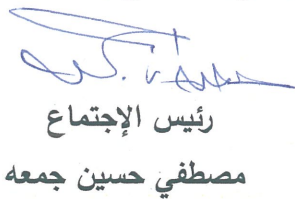 رئيس الإجتماع
مصطفي حسين جمعه